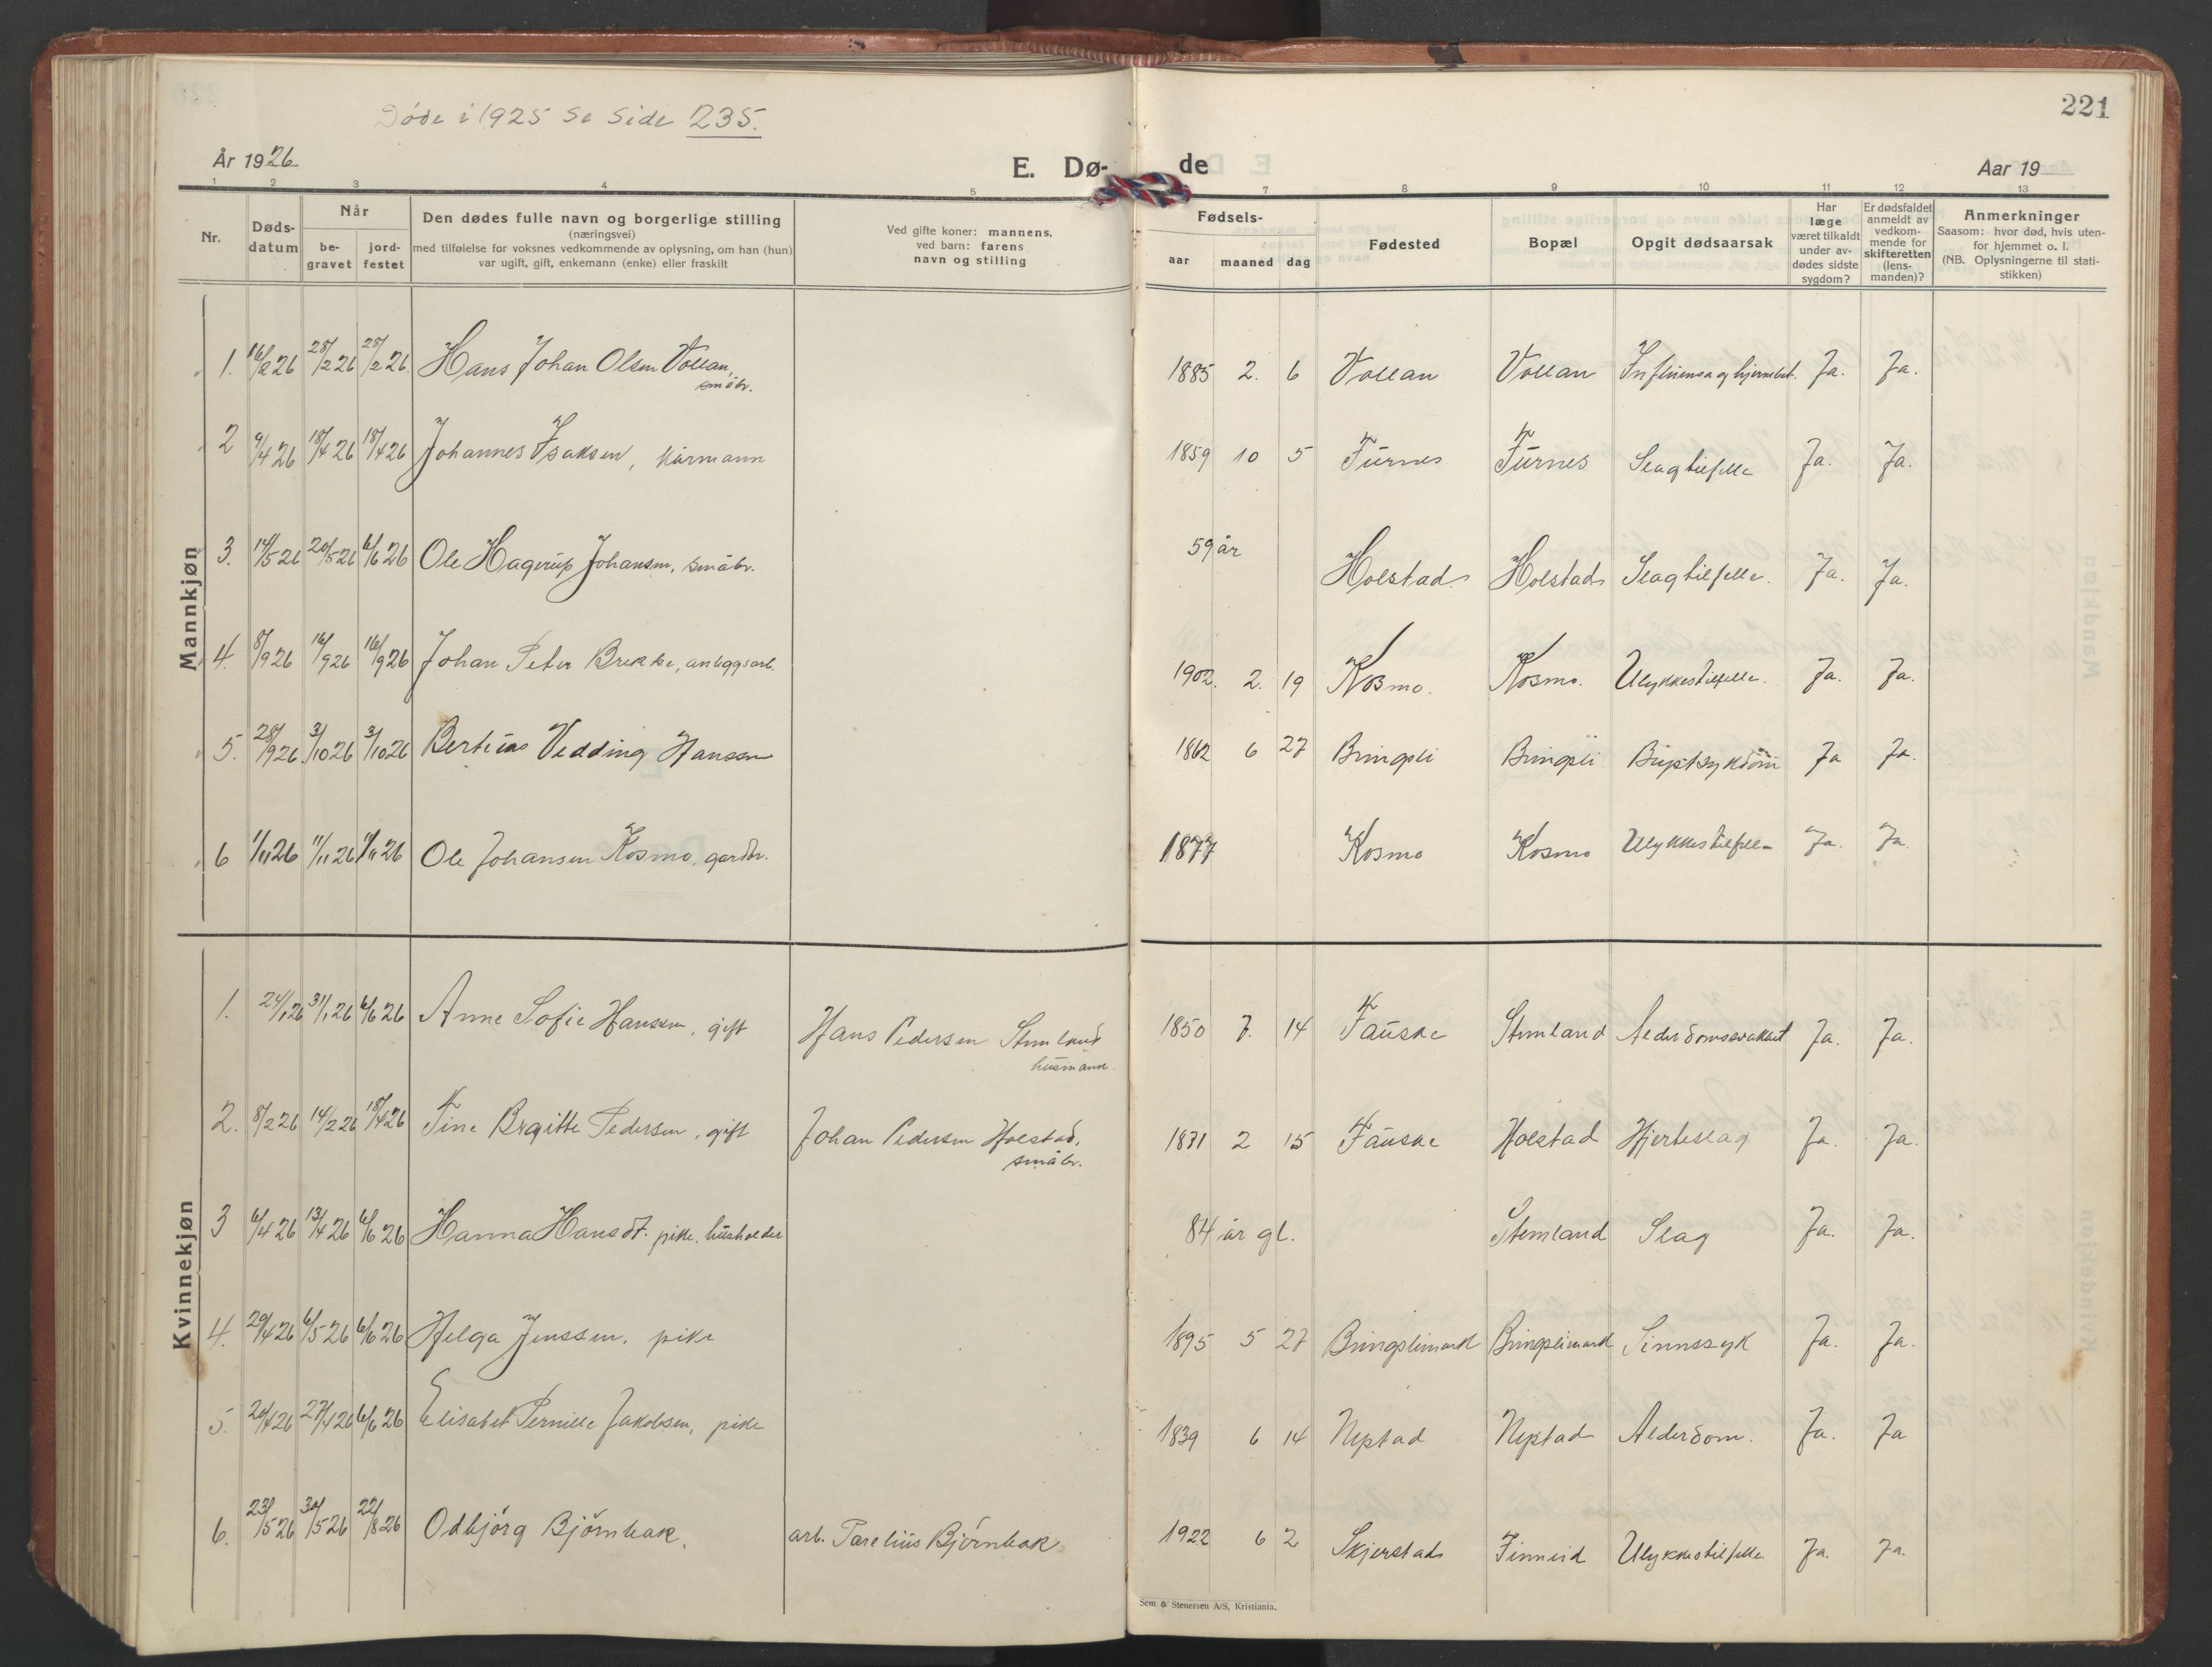 Døde i 1925 se side 235.
221
År 1926
E. Dø-
de
Aar 19
1 2 3 4 5 7 8 9 10 11 12 13
Nr.
Døds-
datum
Når
be-
gravet
jord-
festet
Den dødes fulle navn og borgerlige stilling
(næringsvei)
med tilføielse for voksnes vedkommende av oplysning, om han (hun)
var ugift, gift, enkemann (enke) eller fraskilt
Ved gifte koner: mannens,
ved barn: farens
navn og stilling
Fødsels-
aar maaned dag
Fødested
Bopæl
Opgit dødsaarsak
Har
læge
været tilkaldt
under av-
dødes sidste
sygdom?
Er dødsfaldet
anmeldt av
vedkom-
mende for
skifteretten
(lens-
manden)?
Anmerkninger
Saasom: hvor død, hvis uten-
for hjemmet o. l.
(NB. Oplysningerne til stati-
stikken)
Mannkjøn
1. 16/2 26 28/2 26 28/2 26. Hans Johan Olsen Vollan, 1885 2. 6 Vollan Vollan Influensa og hjernebet. Ja. Ja.
småbr.
2 9/4 26 18/4 26 18/4 26 Johannes Isaksen, kårmann 1859 10 5 Furnes Furnes Slagtilfelle Ja. Ja.
3. 14/5 26 20/5 26 6/6 26 Ole Hagerup Johansen, småbr. 59 år Holstad Holstad Slagtilfelle. Ja. Ja.
4. 8/9 26 16/9 26 16/9 26 Johan Peter Brekke, anleggsarb. 1902. 2. 19 Kosmo. Kosmo. Ulykkestilfelle. Ja. Ja.
5. 28/9 26. 3/10 26 3/10 26 Bertius Vedding Hanssen 1862 6 27 Bringsli Bringsli Brystsykdom Ja Ja.
6 1/11 26 11/11 26 11/11 26 Ole Johansen Kosmo, gardbr. 1877 Kosmo Kosmo Ulykkestilfelle Ja. Ja.
Kvinnekjøn
1. 24/1 26 31/1 26 6/6 26 Anne Sofie Hanssen, gift Hans Pedersen Stemland 1850 7. 14 Fauske Stemland Alderdomssvakhet Ja. Ja.
husmann.
2. 8/2 26 14/2 26 18/4 26 Tine Brgitte Pedersen, gift Johan Pedersen Holstad, 1871 2 15 Fauske Holstad Hjerteslag Ja. Ja.
småbr.
3 6/4 26 13/4 26 6/6 26 Hanna Hansdt. pike. husholder 84 år gl. Stemland Slag Ja. Ja.
4. 29/4 26 6/5 26 6/6 26 Helga Jenssen. pike 1895 5 27 Bringslimark Bringslimark Sinnssyk Ja. Ja.
5. 20/4 26 27/4 26 6/6 26 Elisabet Pernille Jakobsen, pike 1839 6 14 Nystad Nystad Alderdom. Ja. Ja
6. 23/5 26 30/5 26 22/8 26 Odbjørg Bjørnbak. arb. Parelius Bjørnbak 1922 6 2 Skjerstad Finneid Ulykkestilfelle Ja. Ja.
Sem & Stenersen A/S, Kristiania.